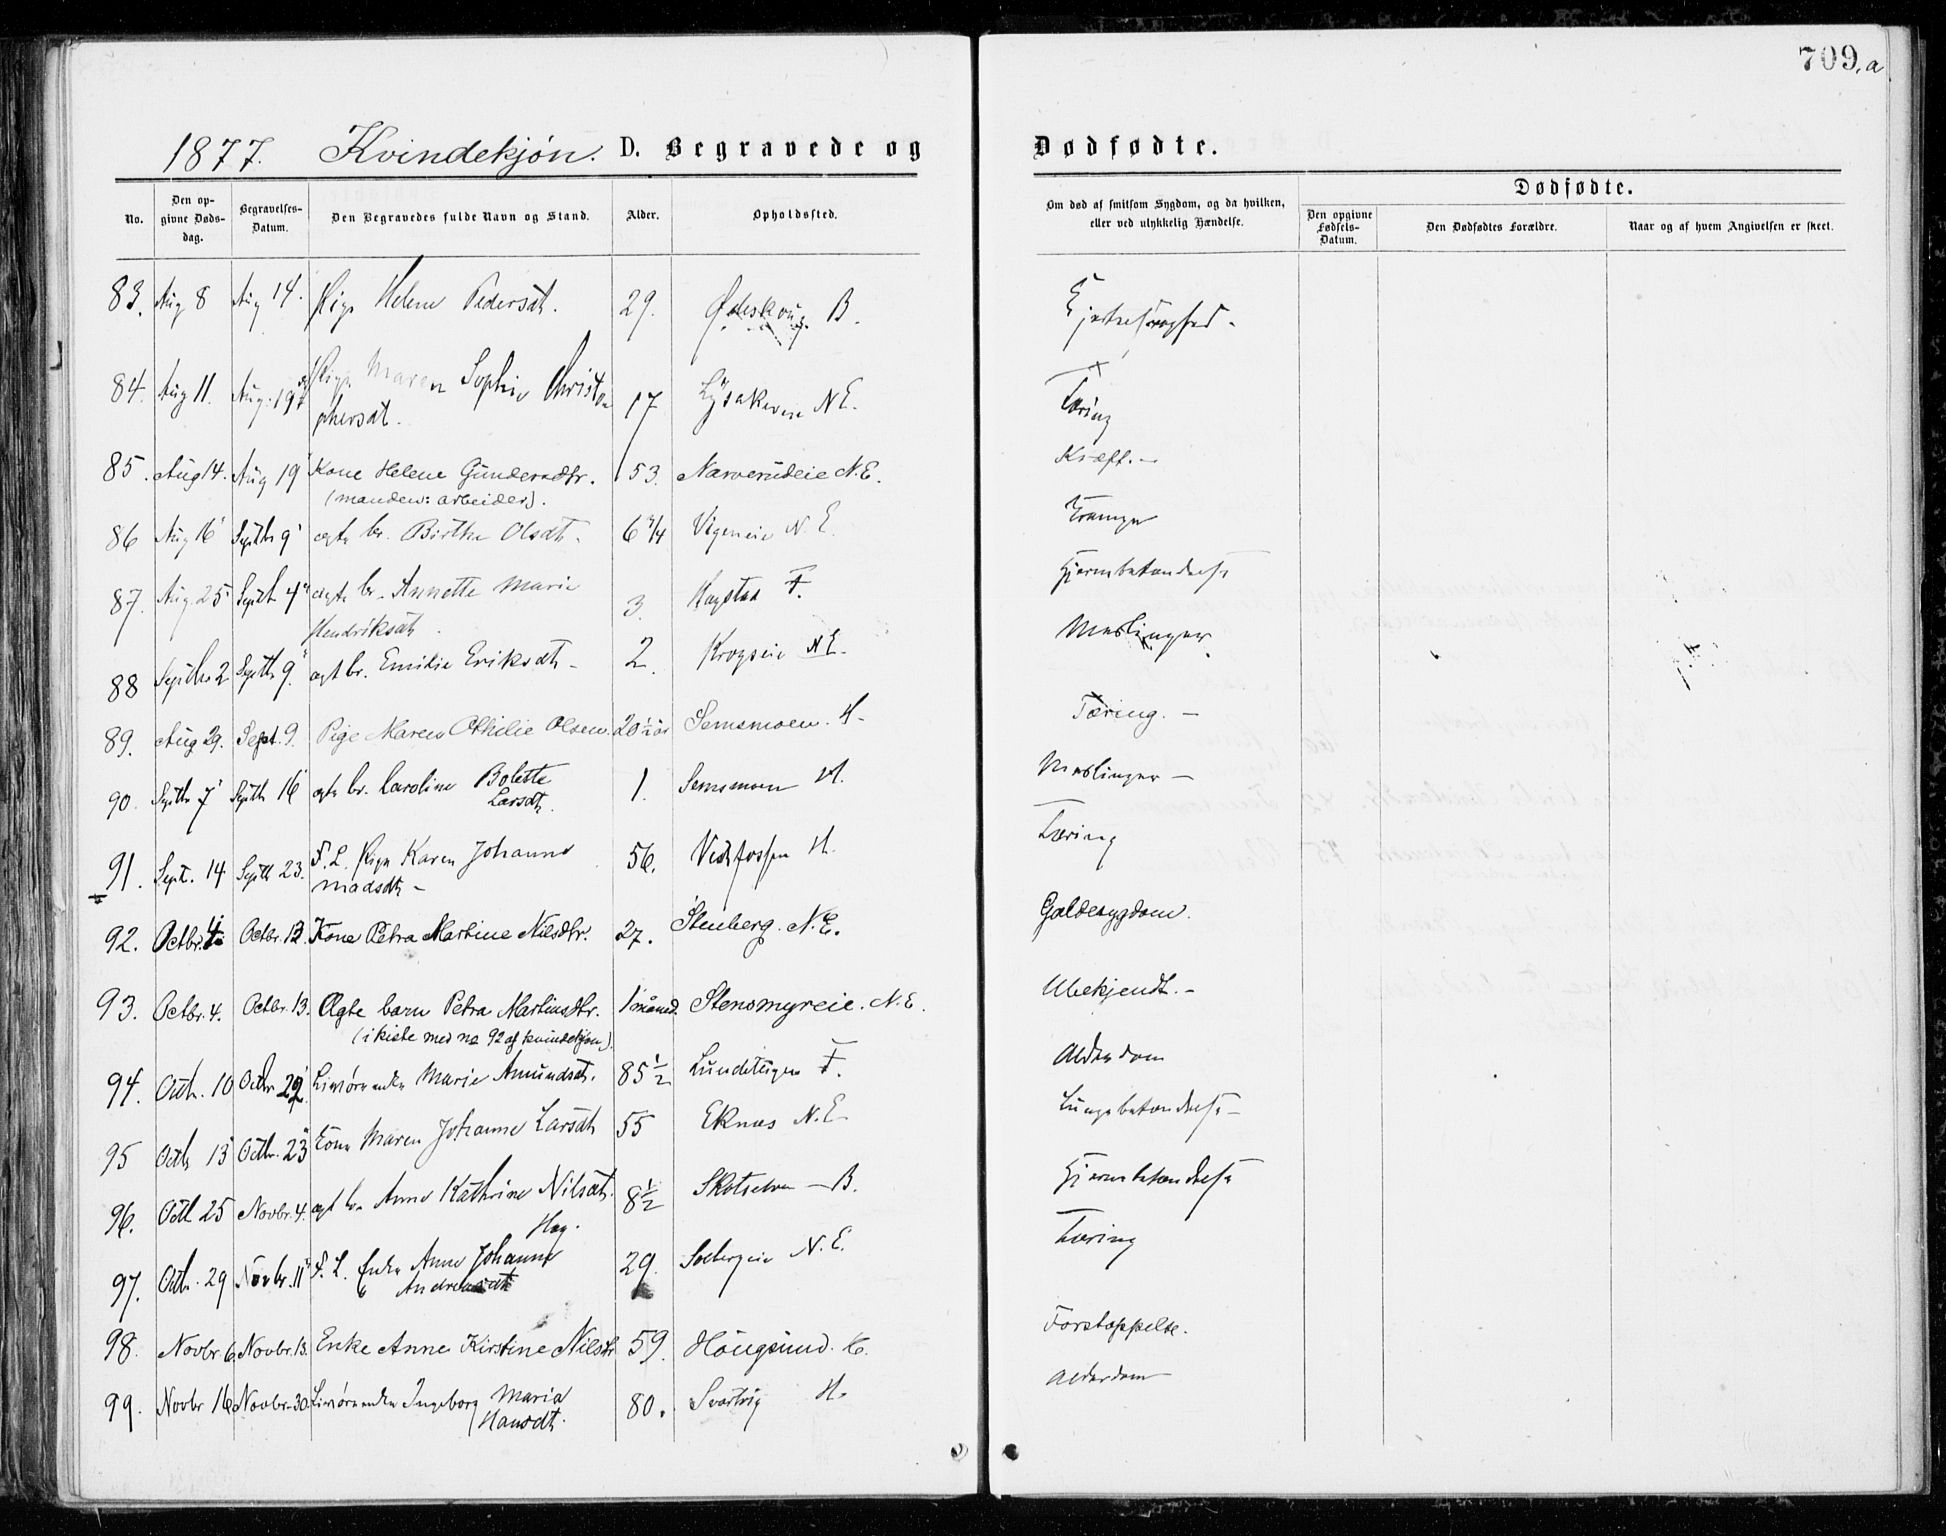 709.a
1877. Kvindekjøn. D. Begravede og Dødfødte.
No.
Den opgivne Dødsdag.
Begravelses-Datum.
Den Begravedes fulde Navn og Stand.
Alder.
Opholdssted.
Om død af smitsom Sygdom, og da hvilken, eller ved ulykkelig Hændelse.
Dødfødte.
Den opgivne Fødsels-Datum.
Den Dødfødtes Forældre.
Naar og af hvem Angivelsen er skeet.
83. Aug 8 Aug 14. Pige Helene Pedersdt. 29. B.
84. Aug 11. Aug. 19 Pige Maren Sophie Christo 17 N E. Tæring
phersdt.
85. Aug 14. Aug 19 Kone Helene Gundersdtr. 53. Narverudeie N.E. Kræft. -
(manden: arbeider).
86 Aug 16 Septb 9 ægte br. Birthe Olsdt. 6 3/4 Vigeneie N. E. Krampe
87. Aug. 25 Septb 4 ægte br. Annette Marie 3. Hagstad F. Hjernebetændelse
Hendriksdt.
88 Septbr 2 Septb 9. ægt br. Emilie Eriksdt - 2. Krogseie N E. Meslinger
89. Aug 29. Sept. 9. Pige Maren Othilie Olsen. 20 1/2 år Semsmoen. H. Tæring. -
90. Septbr 7 Septb 16 ægte br. Caroline Bolette 1. Semsmoen H. Meslinger -
Larsdt.
91. Sept. 14 Septb 23. F. L. Pige Karen Johanne 56. Vestfossen H. Tæring
Madsdt -
92. Octbr. 4 Octbr. 13 Kone Petra Martine Nilsdtr. 27. Stenberg. N.E. Galdesygdom.
93. Octbr. 4. Octbr. 13. Ægte barn Petra Martinsdtr. 1 måned. Stensmyreie. N.E. Ubekjendt. -
(i kiste med no 92 af kvindekjøn).
94. Octb. 10 Octbr 22 Livøreenke Marie Amundsdt. 85 1/2 F. Alderdom
95 Octb 13 Octb. 23 Kone Maren Johanne Larsdt 55 Eknæs N.E. Lungebetændelse -
96. Octb 25 Novbr. 4. ægt br. Anne Kathrine Nilsdt. 8 1/2 Skotselven - B. Hjernebetændelse
Hag.
97. Octb. 29 Novbr. 11 F. L. Enke Anne Johanne 29. Solbergeie N.E. Tæring
Andreasdt
98. Novbr. 6. Novbr. 13. Enke Anne Kirstine Nilsdtr 59. Hougsund. H. Forstoppelse.
99. Novbr 16 Novbr. 30. Livøreenke Ingeborg Maria 80. Svartvig H. Alderdom
Hansdt.